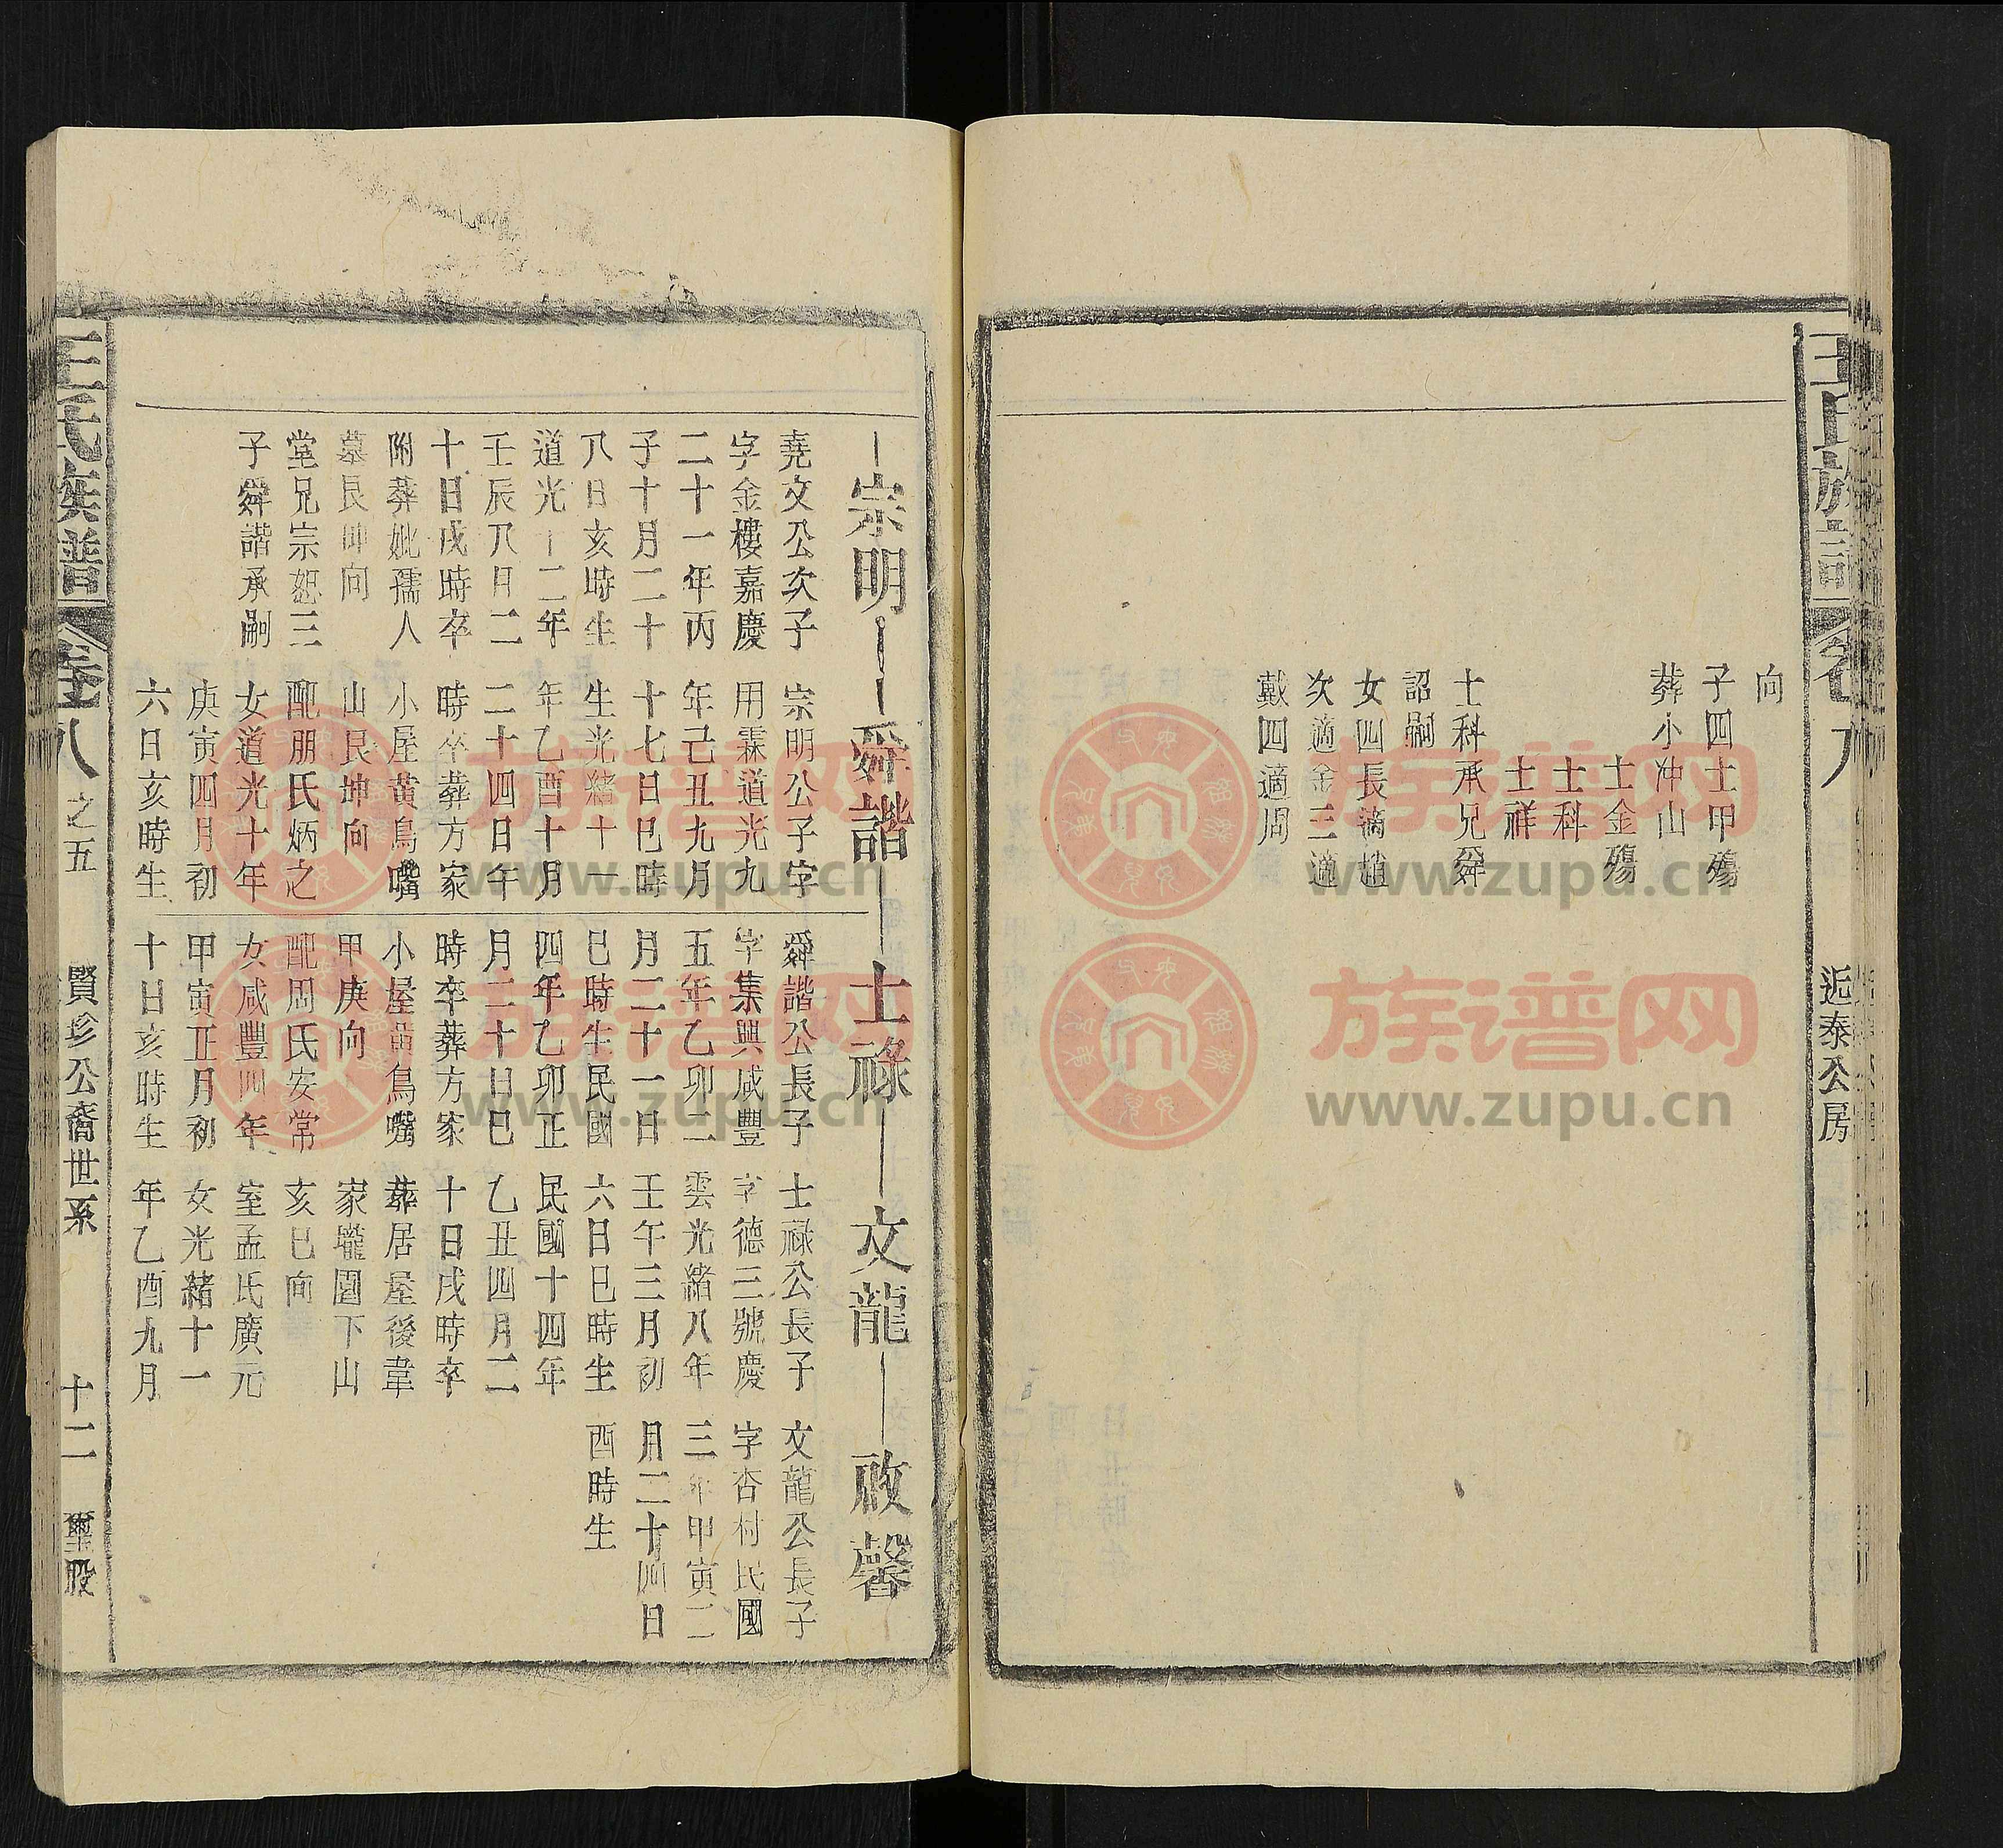 王氏族譜
卷八
近泰公房
向
子四士甲殤
葬小冲山
士金殤
士科
士祥
士科承兄舜
詔嗣
女四長適趙
次適金三適
戴四適周
宗明——舜諧——士祿——文龍——啟馨
堯文公次子
字金樓嘉慶
二十一年丙
子十月二十
八日亥時生
道光十二年
壬辰八月二
十日戌時卒
附葬妣孺人
墓艮坤向
堂兄宗恕三
子舜諧承嗣
宗明公子字
用霖道光九
年己丑九月
十七日巳時
生光緒十一
年乙酉十月
二十四日午
時卒葬方家
小屋黃鳥嘴
山艮坤向
配朋氏炳之
女道光十年
庚寅四月初
六日亥時生
舜諧公長子
字集興咸豐
五年乙卯二
月二十一日
巳時生民國
四年乙卯正
月二十日巳
時卒葬方家
小屋黃鳥嘴
甲庚向
配周氏安常
女咸豐四年
甲寅正月初
十日亥時生
士祿公長子
字德三號慶
雲光緒八年
壬午三月初
六日巳時生
民國十四年
乙丑四月二
十日戌時卒
葬居屋後韋
家壠園下山
亥巳向
室孟氏廣元
女光緒十一
年乙酉九月
文龍公長子
字杏村民國
三年甲寅二
月二十四日
酉時生
王氏族譜
卷八之五
賢珍公裔世系
十二
璽股
族谱网
www.zupu.cn
族谱网
www.zupu.cn
族谱网
www.zupu.cn
族谱网
www.zupu.cn